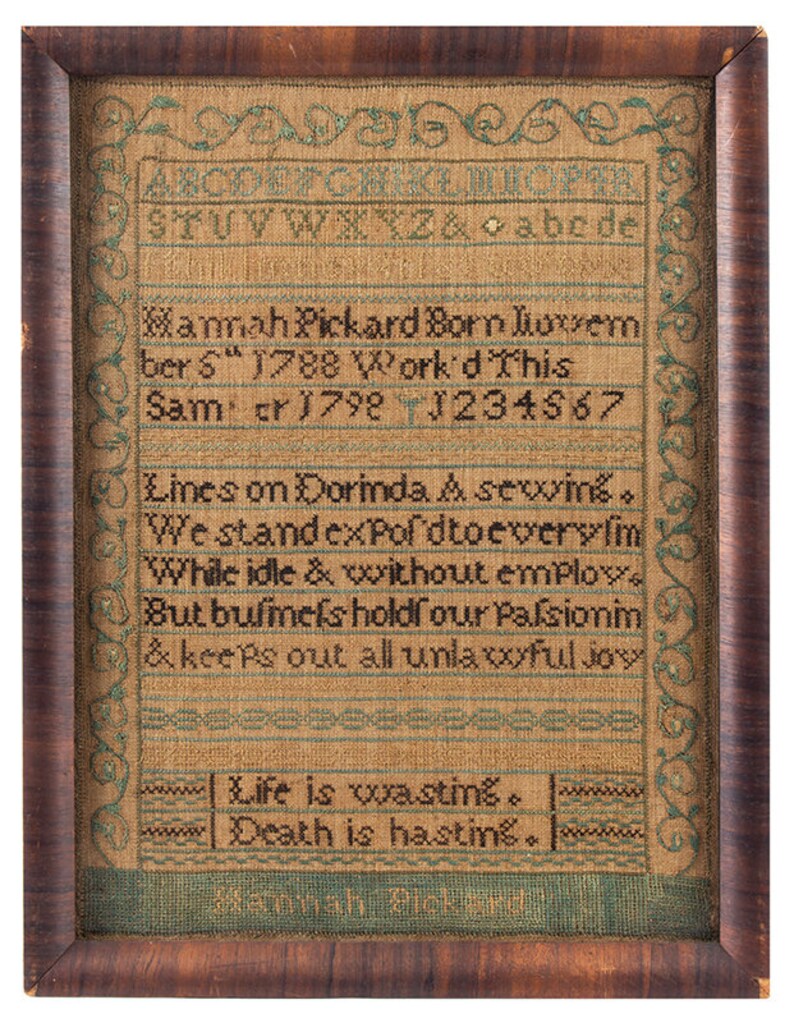 ABCDEFGHIKLMNOPQR
STUVWXYZ& abcde
Hannah Pickard Born Novem
ber 1788 Work'd This
1798 1234567
Lines on Dorinda A sewing.
We stand expoſd to every ſin
While idle & without employ.
But buſineſs holdſ our paſsion in
& keeps out all unlawful joy
Life is wasting.
Death is hasting.
Hannah Pickard